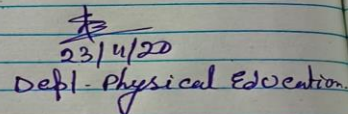 23/4/20
Dept - Physical Education.